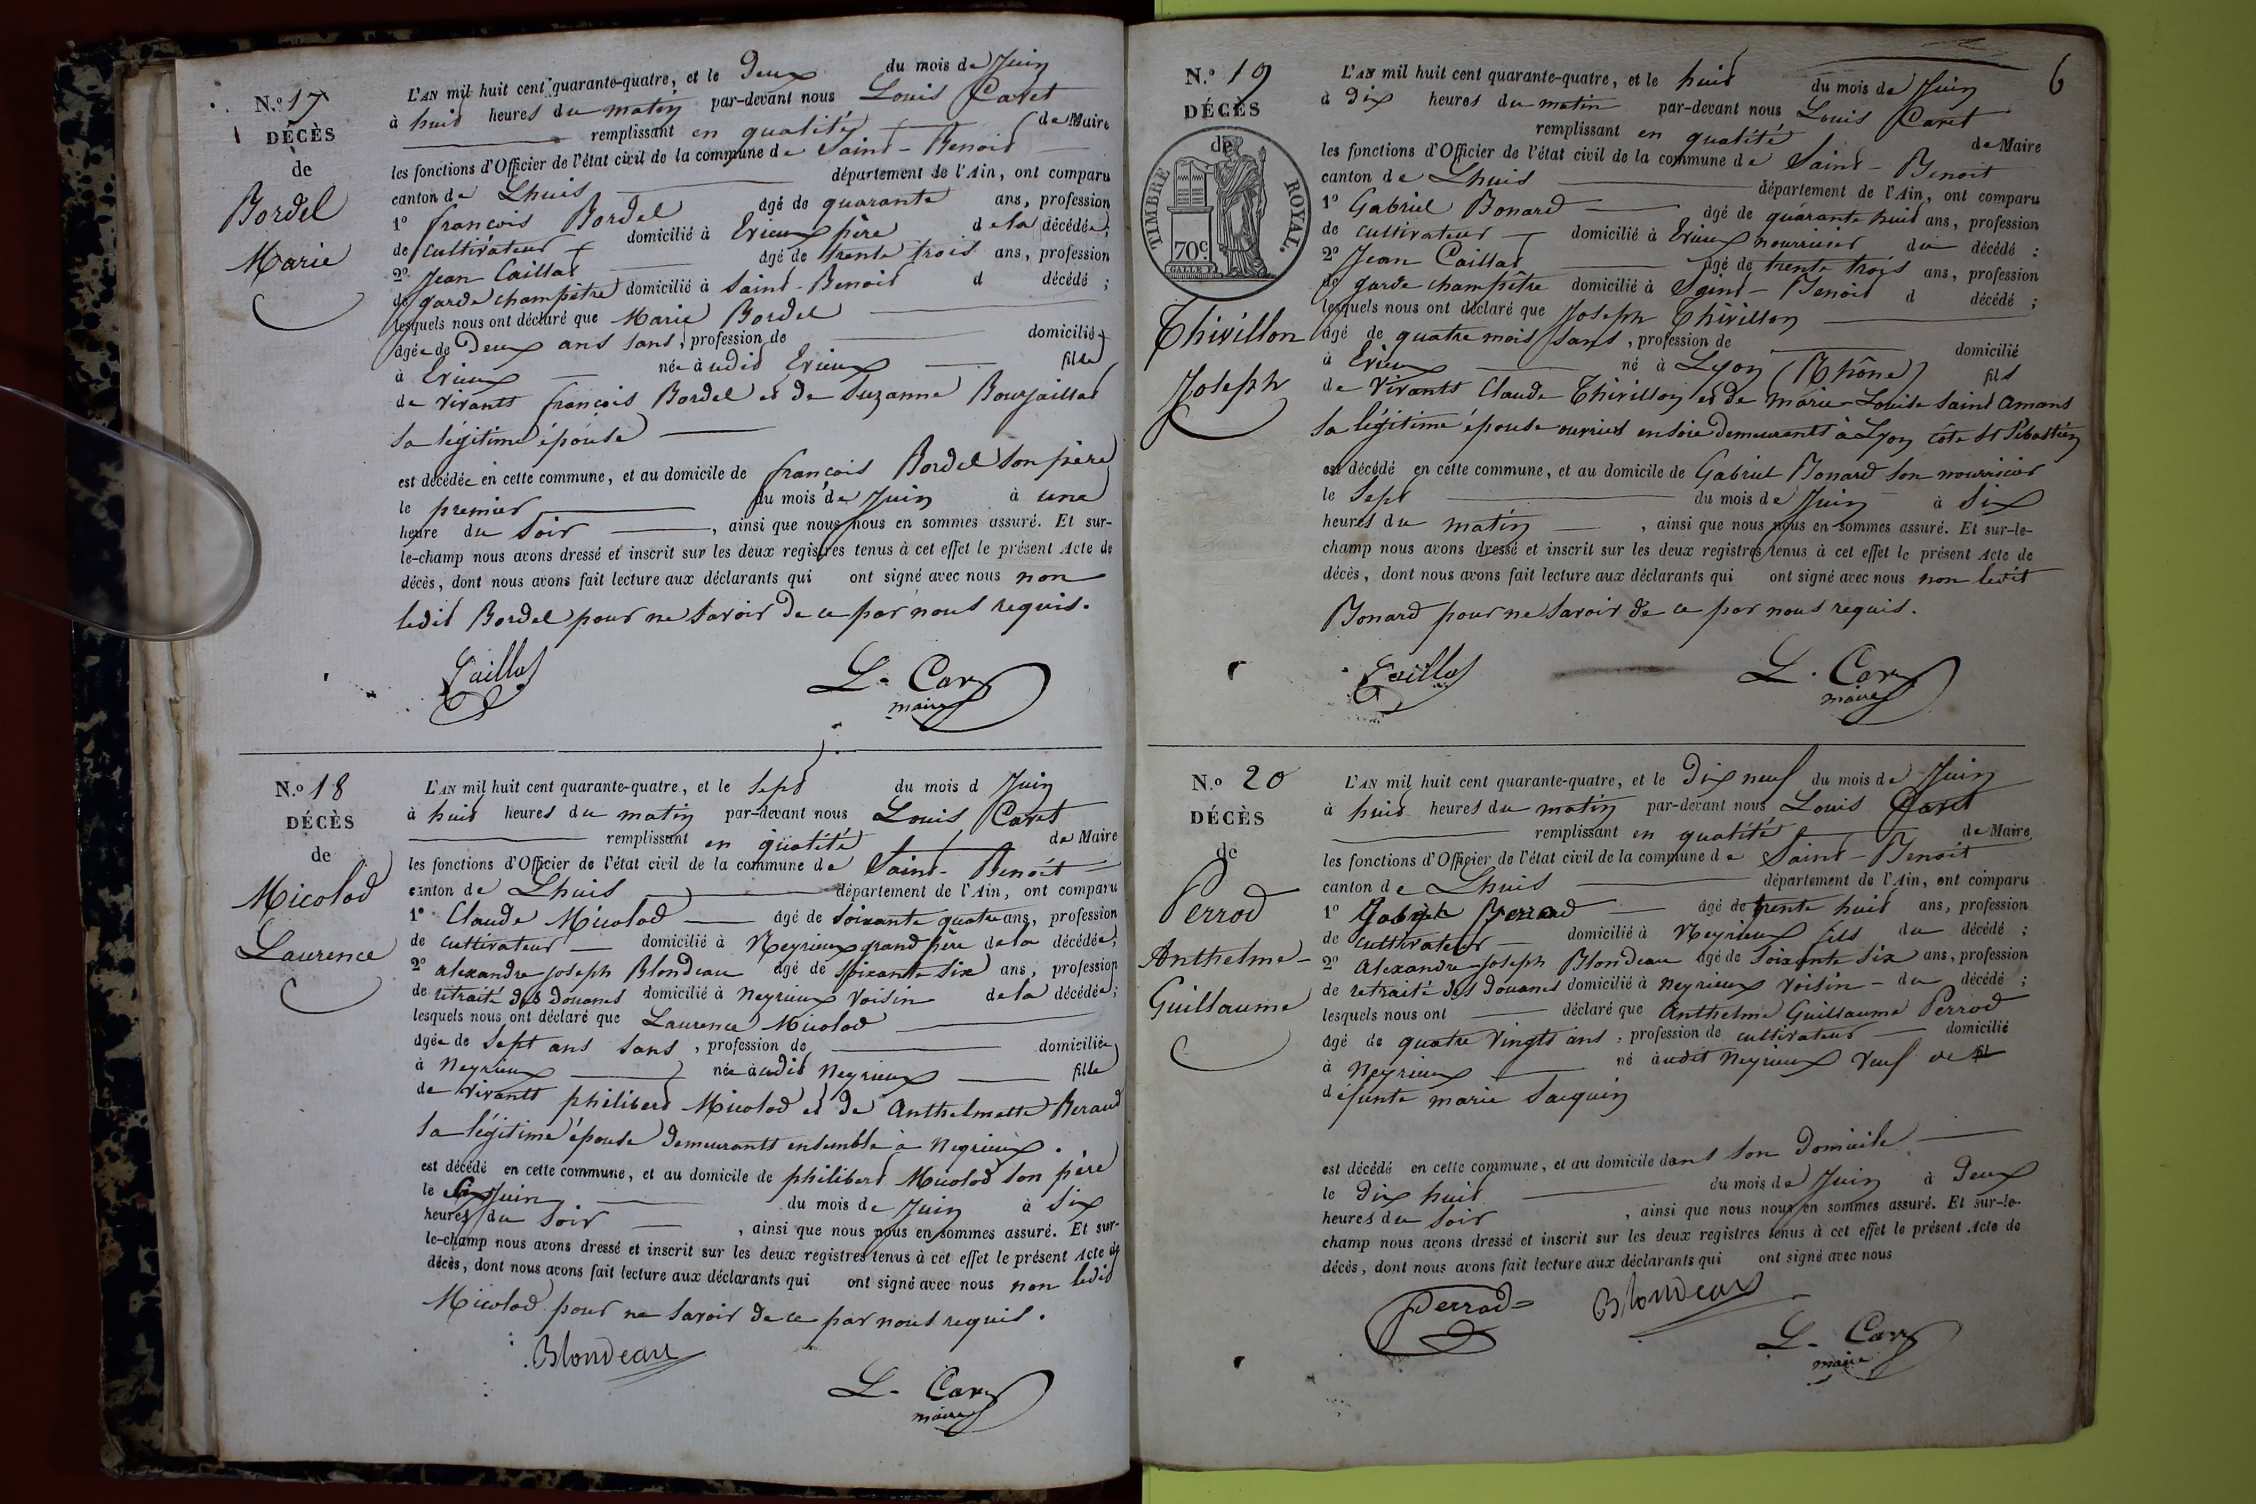 N.º 17
DÉCÈS
de
Bordel
Marie
L'AN mil huit cent quarante-quatre, et le Deux du mois de Juin
à huit heures du matin par-devant nous Louis Caret
remplissant en qualité de Maire
les fonctions d'Officier de l'état civil de la commune de Saint-Benoit
canton de Lhuis département de l'Ain, ont comparu
1º françois Bordel âgé de quarante ans, profession
de cultivateur domicilié à Erieux père de la décédée;
2º Jean Caillat âgé de trente trois ans, profession
de garde champêtre domicilié à Saint-Benoit d décédé ;
lesquels nous ont déclaré que Marie Bordel
âgée de Deux ans sans, profession de domicilié
à Erieux née à udit Erieux fille
de vivants françois Bordel et de Suzanne Bourjaillat
sa légitime épouse
est décédée en cette commune, et au domicile de françois Bordel son père
le premier du mois de Juin à une
heure du soir, ainsi que nous nous en sommes assuré. Et sur-
le-champ nous avons dressé et inscrit sur les deux registres tenus à cet effet le présent Acte de
décès, dont nous avons fait lecture aux déclarants qui ont signé avec nous non
ledit Bordel pour ne savoir de ce par nous requis.
Caillat
L. Caret
maire
N.º 18
DÉCÈS
de
Micolod
Laurence
L'AN mil huit cent quarante-quatre, et le sept du mois d Juin
à huit heures du matin par-devant nous Louis Caret
remplissant en qualité de Maire
les fonctions d'Officier de l'état civil de la commune de Saint-Benoit
canton de Lhuis département de l'Ain, ont comparu
1º Claude Micolod âgé de soixante quatre ans, profession
de cultivateur domicilié à Neyrieux grand père de la décédée;
2º alexandre joseph Blondeau âgé de soixante six ans, profession
de retraité des douanes domicilié à neyrieux voisin de la décédée;
lesquels nous ont déclaré que Laurence Micolod
âgée de sept ans sans, profession de domiciliée
à neyrieux née à udit neyrieux fille
de vivants philibert Micolod et de Anthelmette Beraud
sa légitime épouse demeurants ensemble à neyrieux.
est décédé en cette commune, et au domicile de philibert Micolod son père
le six Juin du mois de Juin à six
heures du soir, ainsi que nous nous en sommes assuré. Et sur-
le-champ nous avons dressé et inscrit sur les deux registres tenus à cet effet le présent Acte de
décès, dont nous avons fait lecture aux déclarants qui ont signé avec nous non ledit
Micolod pour ne savoir de ce par nous requis.
Blondeau
L. Caret
maire
6
N.º 19
DÉCÈS
de
TIMBRE ROYAL.
70c
Thivillon
Joseph
L'AN mil huit cent quarante-quatre, et le huit du mois de Juin
à dix heures du matin par-devant nous Louis Caret
remplissant en qualité de Maire
les fonctions d'Officier de l'état civil de la commune de Saint-Benoit
canton de Lhuis département de l'Ain, ont comparu
1º Gabriel Bonard âgé de quarante huit ans, profession
de cultivateur domicilié à Erieux nourricier du décédé ;
2º Jean Caillat âgé de trente trois ans, profession
de garde champêtre domicilié à Saint-Benoit d décédé ;
lesquels nous ont déclaré que Joseph Thivillon
âgé de quatre mois sans, profession de domicilié
à Erieux né à Lyon (Rhône) fils
de vivants Claude Thivillon et de marie-Louise Saint amans
sa légitime épouse ouvriers en soie demeurants à Lyon côte St Sébastien
est décédé en cette commune, et au domicile de Gabriel Bonard son nourricier
le Sept du mois de Juin à six
heures du matin, ainsi que nous nous en sommes assuré. Et sur-le-
champ nous avons dressé et inscrit sur les deux registres tenus à cet effet le présent Acte de
décès, dont nous avons fait lecture aux déclarants qui ont signé avec nous non ledit
Bonard pour ne savoir de ce par nous requis.
Caillat
L. Caret
maire
N.º 20
DÉCÈS
de
Perrod
Anthelme-
Guillaume
L'AN mil huit cent quarante-quatre, et le Dix neuf du mois de Juin
à huit heures du matin par-devant nous Louis Caret
remplissant en qualité de Maire
les fonctions d'Officier de l'état civil de la commune de Saint-Benoit
canton de Lhuis département de l'Ain, ont comparu
1º âgé de trente huit ans, profession
de cultivateur domicilié à Neyrieux fils du décédé ;
2º Alexandre-Joseph Blondeau âgé de soixante six ans, profession
de retraité des douanes domicilié à neyrieux voisin du décédé ;
lesquels nous ont déclaré que Anthelme Guillaume Perrod
âgé de quatre vingts ans, profession de cultivateur domicilié
à neyrieux né àudit neyrieux veuf de
défunte marie Jacquin
est décédé en cette commune, et au domicile dans son Domicile
le Dix huit du mois de Juin à Deux
heures du soir, ainsi que nous nous en sommes assuré. Et sur-le-
champ nous avons dressé et inscrit sur les deux registres tenus à cet effet le présent Acte de
décès, dont nous avons fait lecture aux déclarants qui ont signé avec nous
Perrod
Blondeau
L. Caret
maire